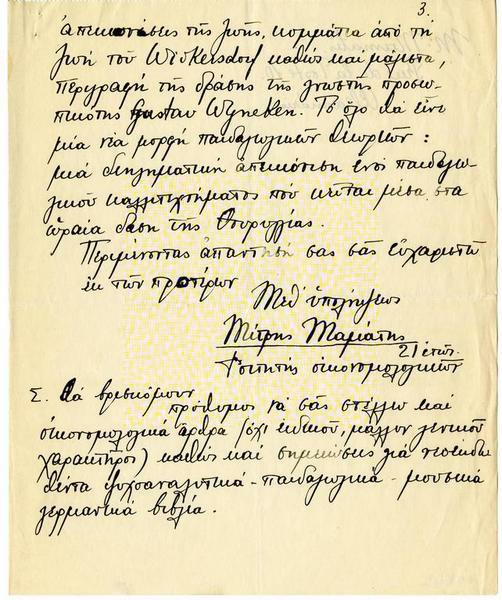 3.
ἀπεικονίσεις τῆς ζωῆς, κομμάτια ἀπὸ τὴ
ζωὴ τοῦ Wickersdorf καθὼς καὶ μάλιστα,
περιγραφὴ τῆς δράσης τῆς γνωστῆς προσω-
πικότης Gustav Wyneken. Τὸ ὅλο θὰ εἶναι
μία νέα μορφὴ παιδαγωγικῶν θεωριῶν:
μιὰ διηγηματικὴ ἀπεικόνιση ἑνὸς παιδαγω-
γικοῦ καλλιτεχνήματος ποὺ κεῖται μέσα στα
ὡραῖα δάση τῆς Θουριγγίας.
Περιμένοντας ἀπάντησή σας σᾶς εὐχαριστῶ
ἐκ τῶν προτέρων
Μεθ' ὑπολήψεως
Μῆτρης
21 ἐτῶν.
Φοιτητὴς οἰκονομολογικῶν
Σ. Θὰ βρισκόμουν
πρόθυμος νὰ σᾶς στέλλω καὶ
οἰκονομολογικὰ ἄρθρα (ὄχι εἰδικοῦ, μᾶλλον γενικοῦ
χαρακτῆρος) καθὼς καὶ σημειώσεις γιὰ νεοεκδο-
θέντα ψυχοαναλυτικὰ - παιδαγωγικὰ - μουσικὰ
γερμανικὰ βιβλία.